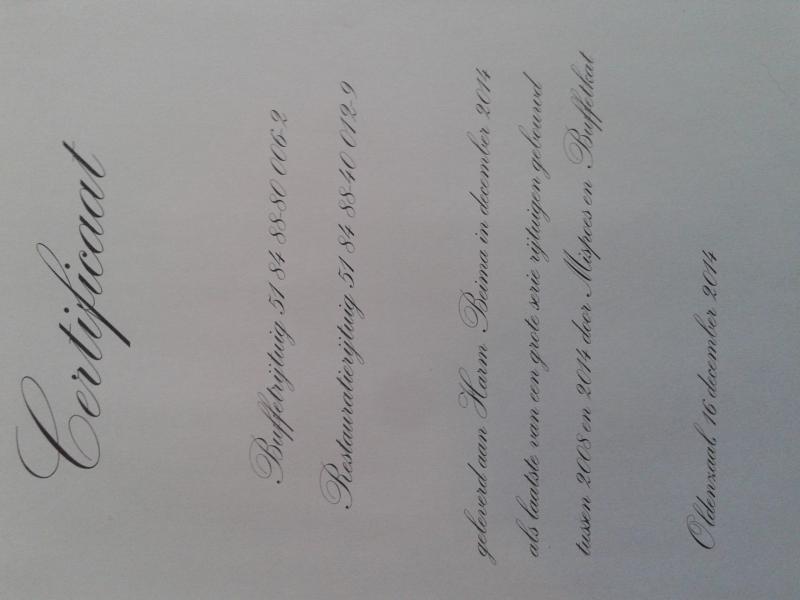 Certificaat
Buffetrijtuig 51 84 88-80 006-2
Restauratierijtuig 51 84 88-40 012-9
geleverd aan Harm Beima in december 2014
als laatste van een grote serie rijtuigen gebouwd
tussen 2008 en 2014 door Mispoes en Buffelkat
Oldenzaal, 16 december 2014